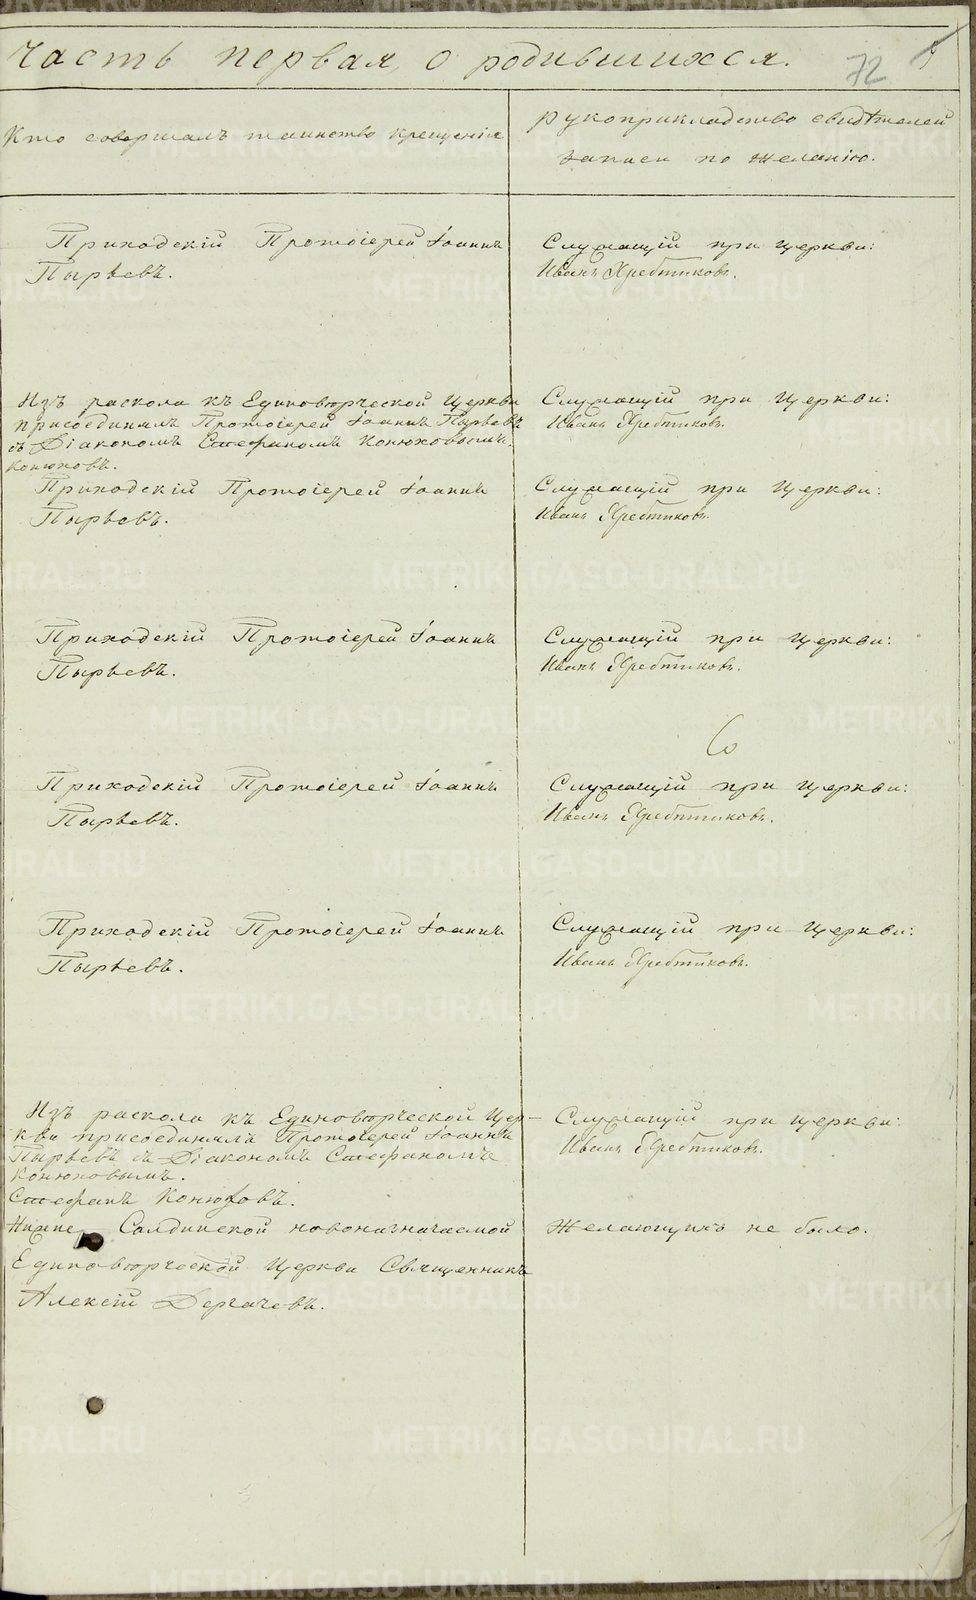 Часть первая, о родившихся.
72
Кто совершалъ таинство крещенія
Рукоприкладство свидѣтелей
записи по желанію.
Приходскій Протоіерей Іоаннъ
Пырьевъ.
Служащій при церкви:
Иванъ Хребтиковъ.
Изъ раскола къ Единовѣрческой Церкви
присоединилъ Протоіерей Іоаннъ Пырьевъ
съ Діакономъ Стефаномъ Конюховымъ.
Конюховъ.
Служащій при Церкви:
Иванъ Хребтиковъ.
Приходскій Протоіерей Іоаннъ
Пырьевъ.
Служащій при Церкви:
Иванъ Хребтиковъ.
Приходскій Протоіерей Іоаннъ
Пырьевъ.
Служащій при Церкви:
Иванъ Хребтиковъ.
Приходскій Протоіерей Іоаннъ
Пырьевъ.
Служащій при Церкви:
Иванъ Хребтиковъ.
Приходскій Протоіерей Іоаннъ
Пырьевъ.
Служащій при Церкви:
Иванъ Хребтиковъ.
Изъ раскола къ Единовѣрческой Цер-
кви присоединилъ Протоіерей Іоаннъ
Пырьевъ съ Діакономъ Стефаномъ
Конюховымъ.
Стефанъ Конюховъ.
Служащій при церкви:
Иванъ Хребтиковъ.
Нижне Салдинской новоназначаемой
Единовѣрческой Церкви Священникъ
Алексій Дергачевъ.
Желающихъ не было.
METRIKI.GASO-URAL.RU